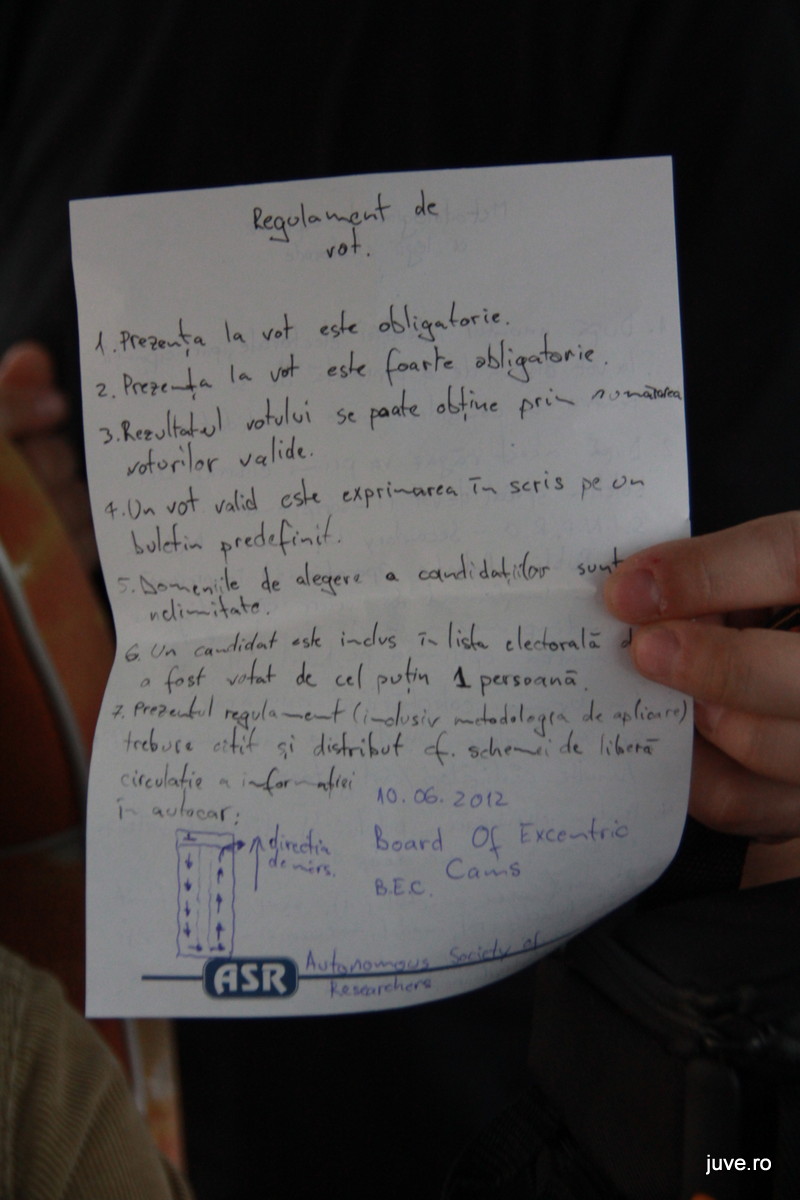 Regulament de
vot.
1. Prezența la vot este obligatorie.
2. Prezența la vot este foarte obligatorie.
3. Rezultatul votului se poate obține prin numărarea
voturilor valide.
4. Un vot valid este exprimarea în scris pe un
buletin predefinit.
5. Domeniile de alegere a candidaților sunt
nelimitate.
6. Un candidat este inclus în lista electorală d
a fost votat de cel puțin 1 persoană.
7. Prezentul regulament (inclusiv metodologia de aplicare)
trebuie citit și distribuit cf. schemei de liberă
circulație a informației
în autocar:
10. 06. 2012
direcția
de mers.
Board Of Excentric
Cams
B.E.C.
ASR Autonomous Society of
Researchers
juve.ro